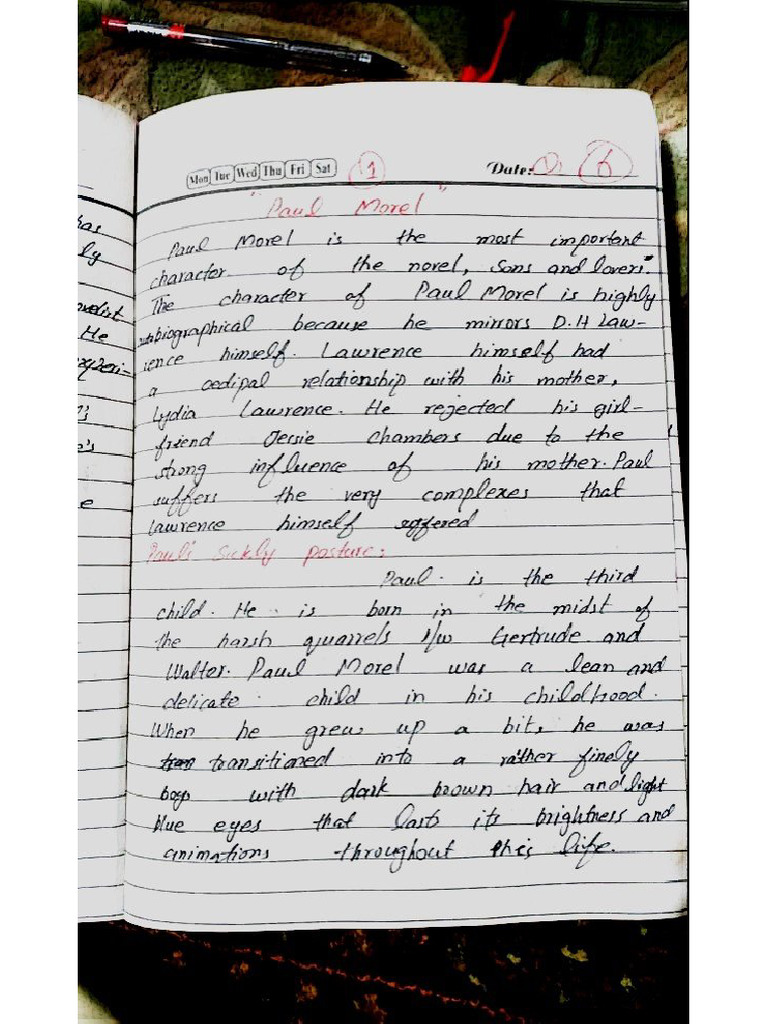 has
ly
He
's
's
e
Mon Tue Wed Thu Fri Sat 1 Date: 6
"Paul Morel"
Paul Morel is the most important
character of the novel, Sons and lovers".
The character of Paul Morel is highly
autobiographical because he mirrors D.H Law-
rence himself. Lawrence himself had
a oedipal relationship with his mother,
Lydia Lawrence. He rejected his girl-
friend Jessie chambers due to the
strong influence of his mother. Paul
suffers the very complexes that
Lawrence himself suffered
Paul's Sickly posture:
Paul is the third
child. He is born in the midst of
the harsh quarrels b/w Gertrude and
Walter. Paul Morel was a lean and
delicate child in his childhood.
When he grew up a bit, he was
transitioned into a rather finely
boy with dark brown hair and light
blue eyes that lasts its brightness and
animations throughout his life.